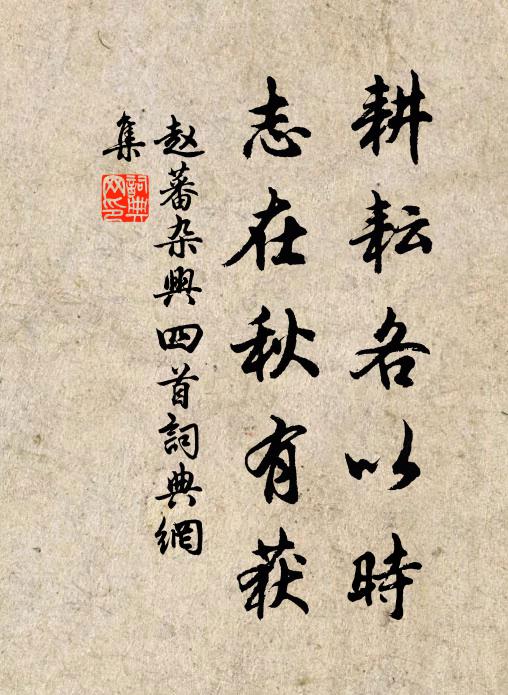 耕耘各以時
志在秋有获
赵蕃杂興四首詞典網
集
詞典
网印